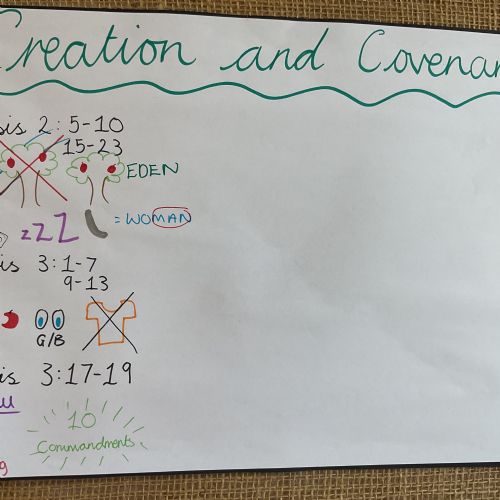 Creation and Covenan
sis 2:5-10
15-23
EDEN
zzZ
= WOMAN
is 3:1-7
9-13
G/B
is 3:17-19
10
Commandments
9